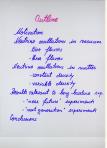 Outline
Motivation
Neutrino oscillations in vacuum
two flavor
three flavor
Neutrino oscillations in matter
constant density
variable density
Results relevant to long baseline exp.
"near future" experiments
"next generation" experiments
Conclusions